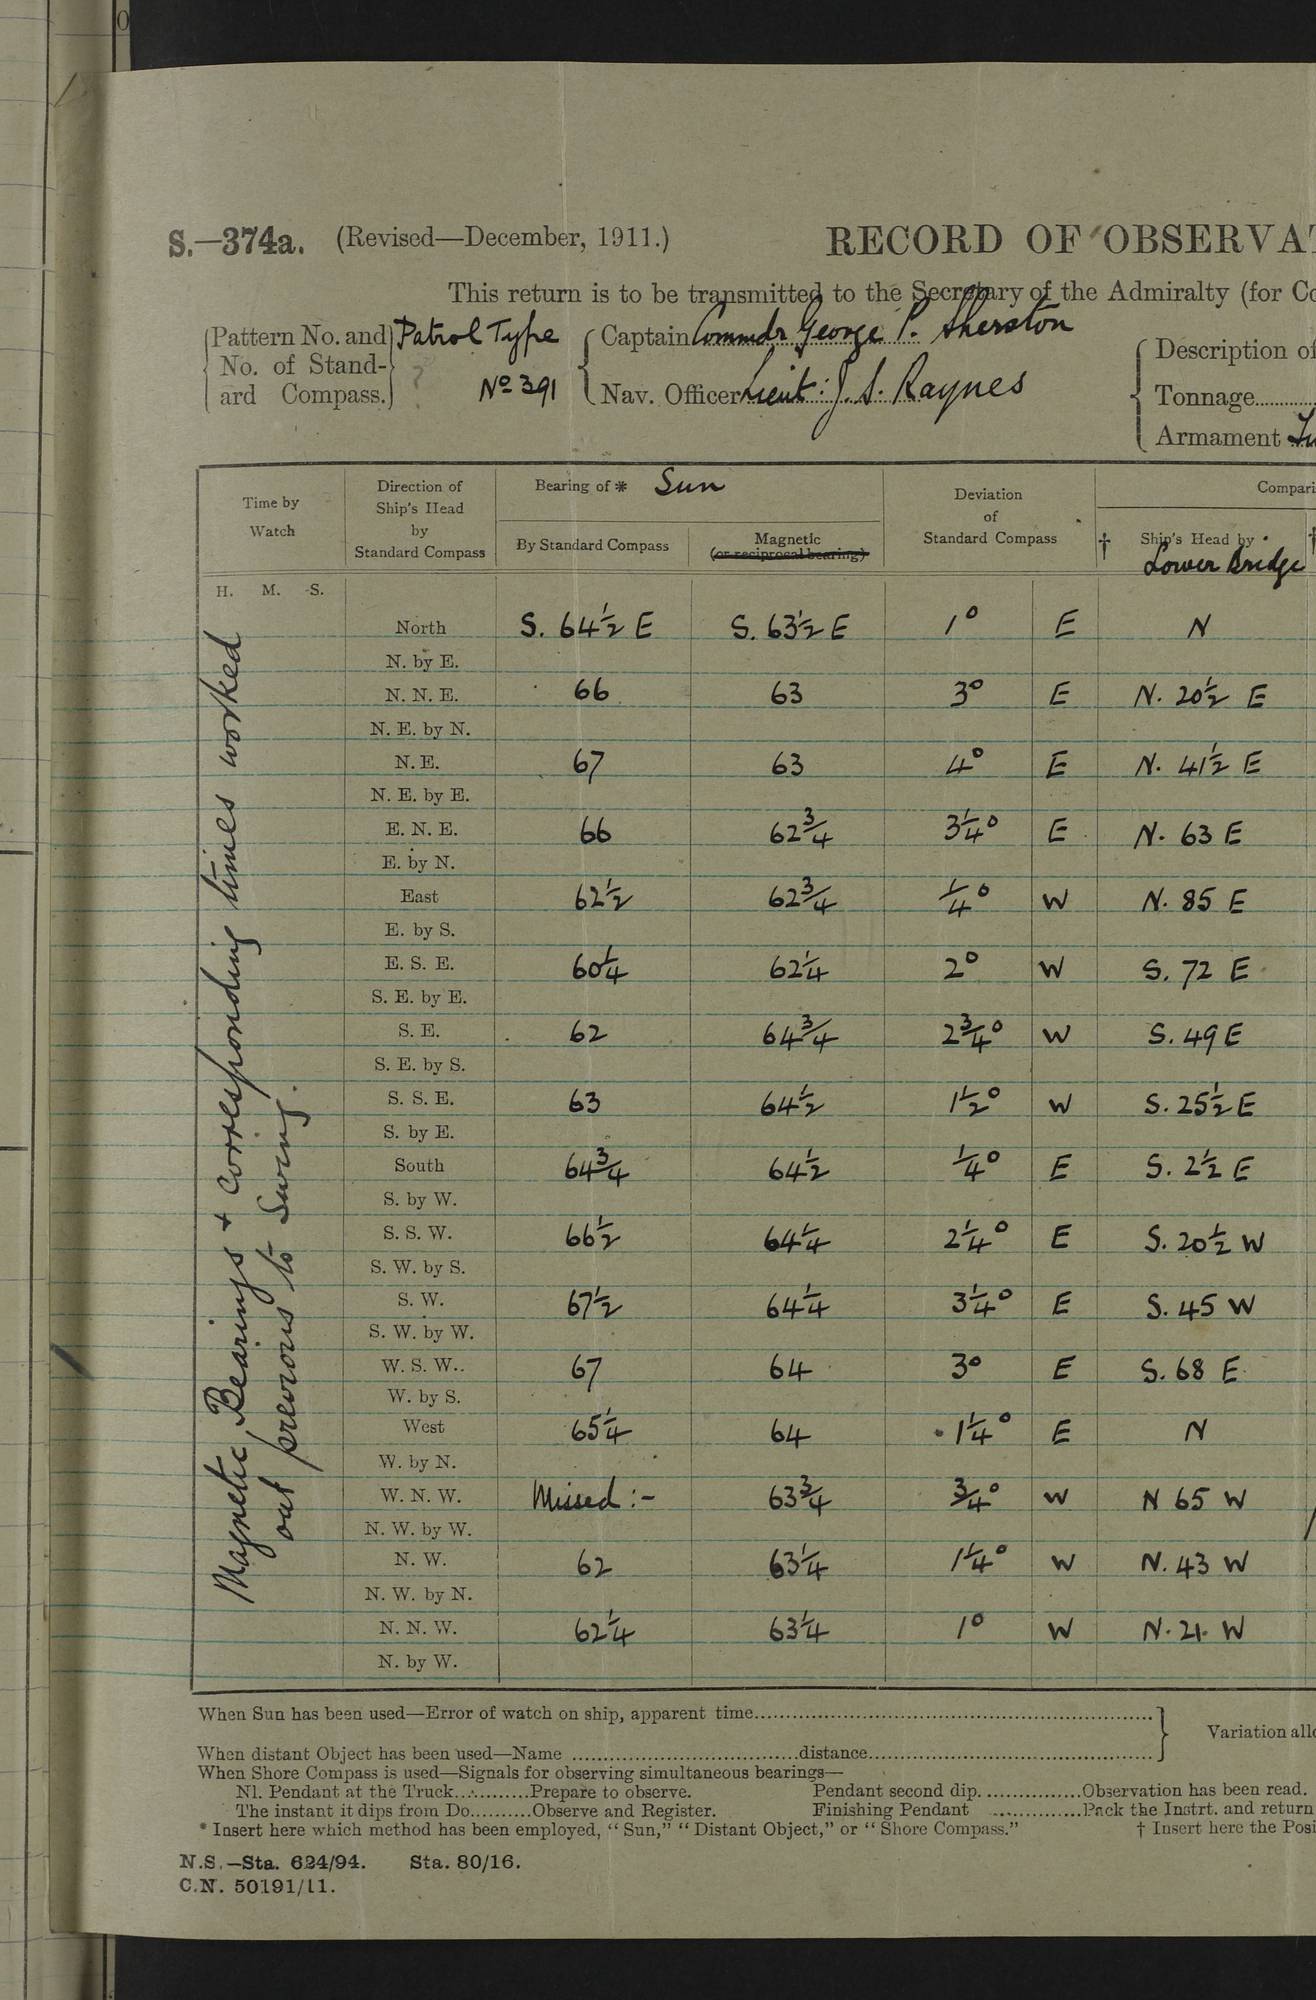 S.—374a. (Revised—December, 1911.) RECORD OF OBSERVAT
This return is to be transmitted to the Secretary of the Admiralty (for Co
Pattern No. and No. of Stand-ard Compass. Patrol Type Nº 391
Captain Commdr George P. Sherston
Nav. Officer Lieut: J. S. Raynes
Description of
Tonnage
Armament
Time by Watch
Direction of Ship's Head by Standard Compass
Bearing of * Sun
By Standard Compass
Magnetic (or reciprocal bearing)
Deviation of Standard Compass
Compari
† Ship's Head by Lower Bridge
H. M. S.
Magnetic Bearings + corresponding times worked
out previous to Swing.
North S. 64½ E S. 63½ E 1° E N
N. by E.
N. N. E. 66 63 3° E N. 20½ E
N. E. by N.
N. E. 67 63 4° E N. 41½ E
N. E. by E.
E. N. E. 66 62¾ 3¼° E N. 63 E
E. by N.
East 62½ 62¾ ¼° W N. 85 E
E. by S.
E. S. E. 60¼ 62¼ 2° W S. 72 E
S. E. by E.
S. E. 62 64¾ 2¾° W S. 49 E
S. E. by S.
S. S. E. 63 64½ 1½° W S. 25½ E
S. by E.
South 64¾ 64½ ¼° E S. 2½ E
S. by W.
S. S. W. 66½ 64¼ 2¼° E S. 20½ W
S. W. by S.
S. W. 67½ 64¼ 3¼° E S. 45 W
S. W. by W.
W. S. W.. 67 64 3° E S. 68 E
W. by S.
West 65¼ 64 1¼° E N
W. by N.
W. N. W. Missed :- 63¾ ¾° W N 65 W
N. W. by W.
N. W. 62 63¼ 1¼° W N. 43 W
N. W. by N.
N. N. W. 62¼ 63¼ 1° W N. 21. W
N. by W.
When Sun has been used—Error of watch on ship, apparent time
Variation allo
When distant Object has been used—Name distance
When Shore Compass is used—Signals for observing simultaneous bearings—
Nl. Pendant at the Truck Prepare to observe. Pendant second dip. Observation has been read.
The instant it dips from Do. Observe and Register. Finishing Pendant Pack the Instrt. and return
* Insert here which method has been employed, "Sun," "Distant Object," or "Shore Compass." † Insert here the Posi
N.S.—Sta. 624/94. Sta. 80/16.
C.N. 50191/11.